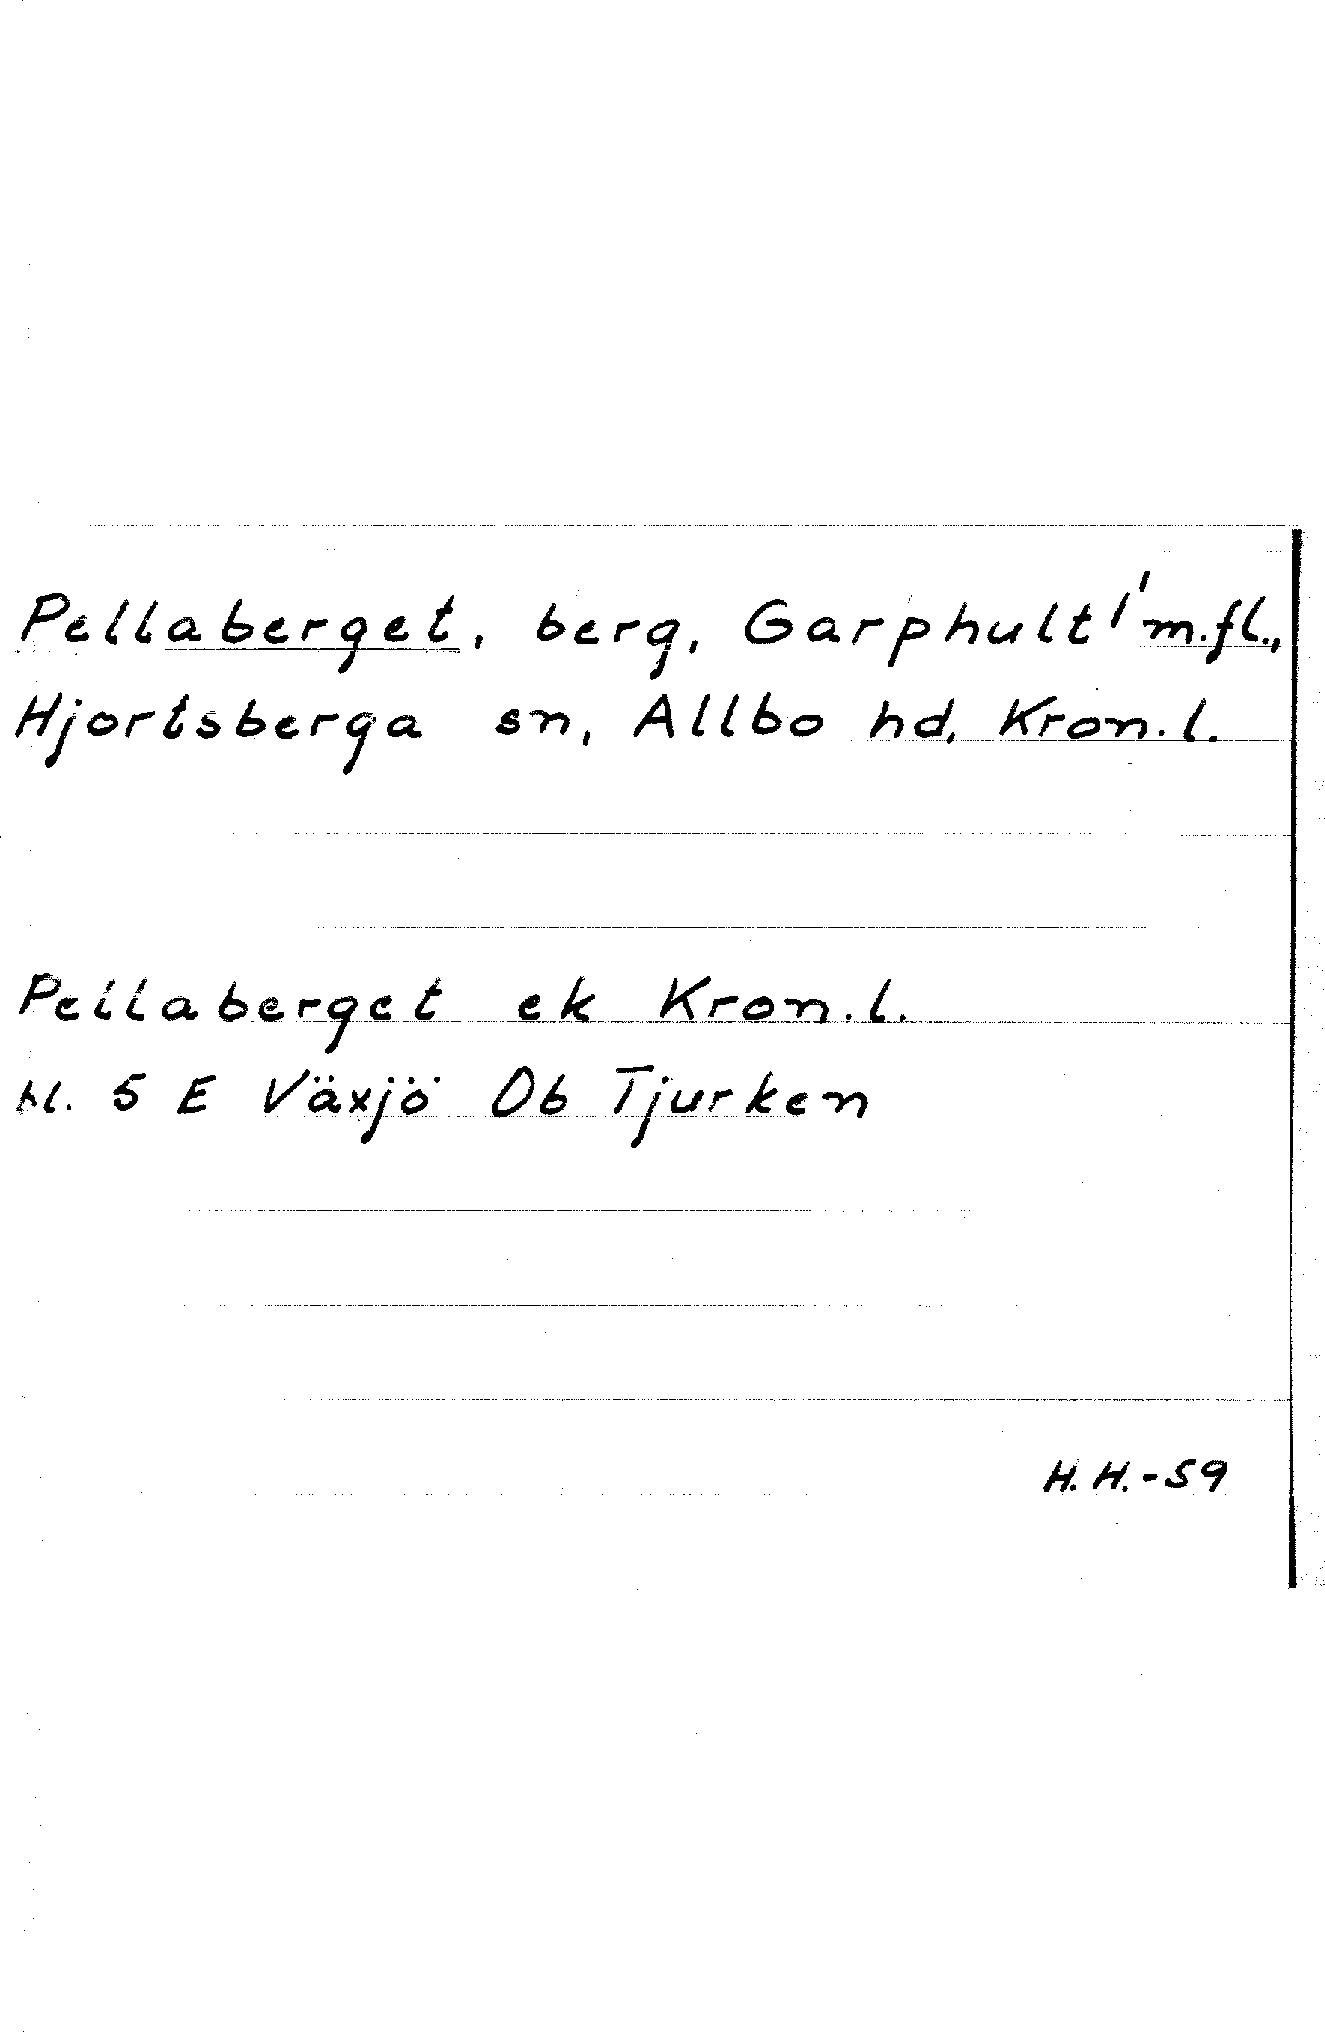 Pellaberget, berg, Garphult 1 m.fl.,
Hjortsberga sn, Allbo hd, Kron.l.
Pellaberget ek Kron.l.
bl. 5 E Växjö Ob Tjurken
H.H.-59